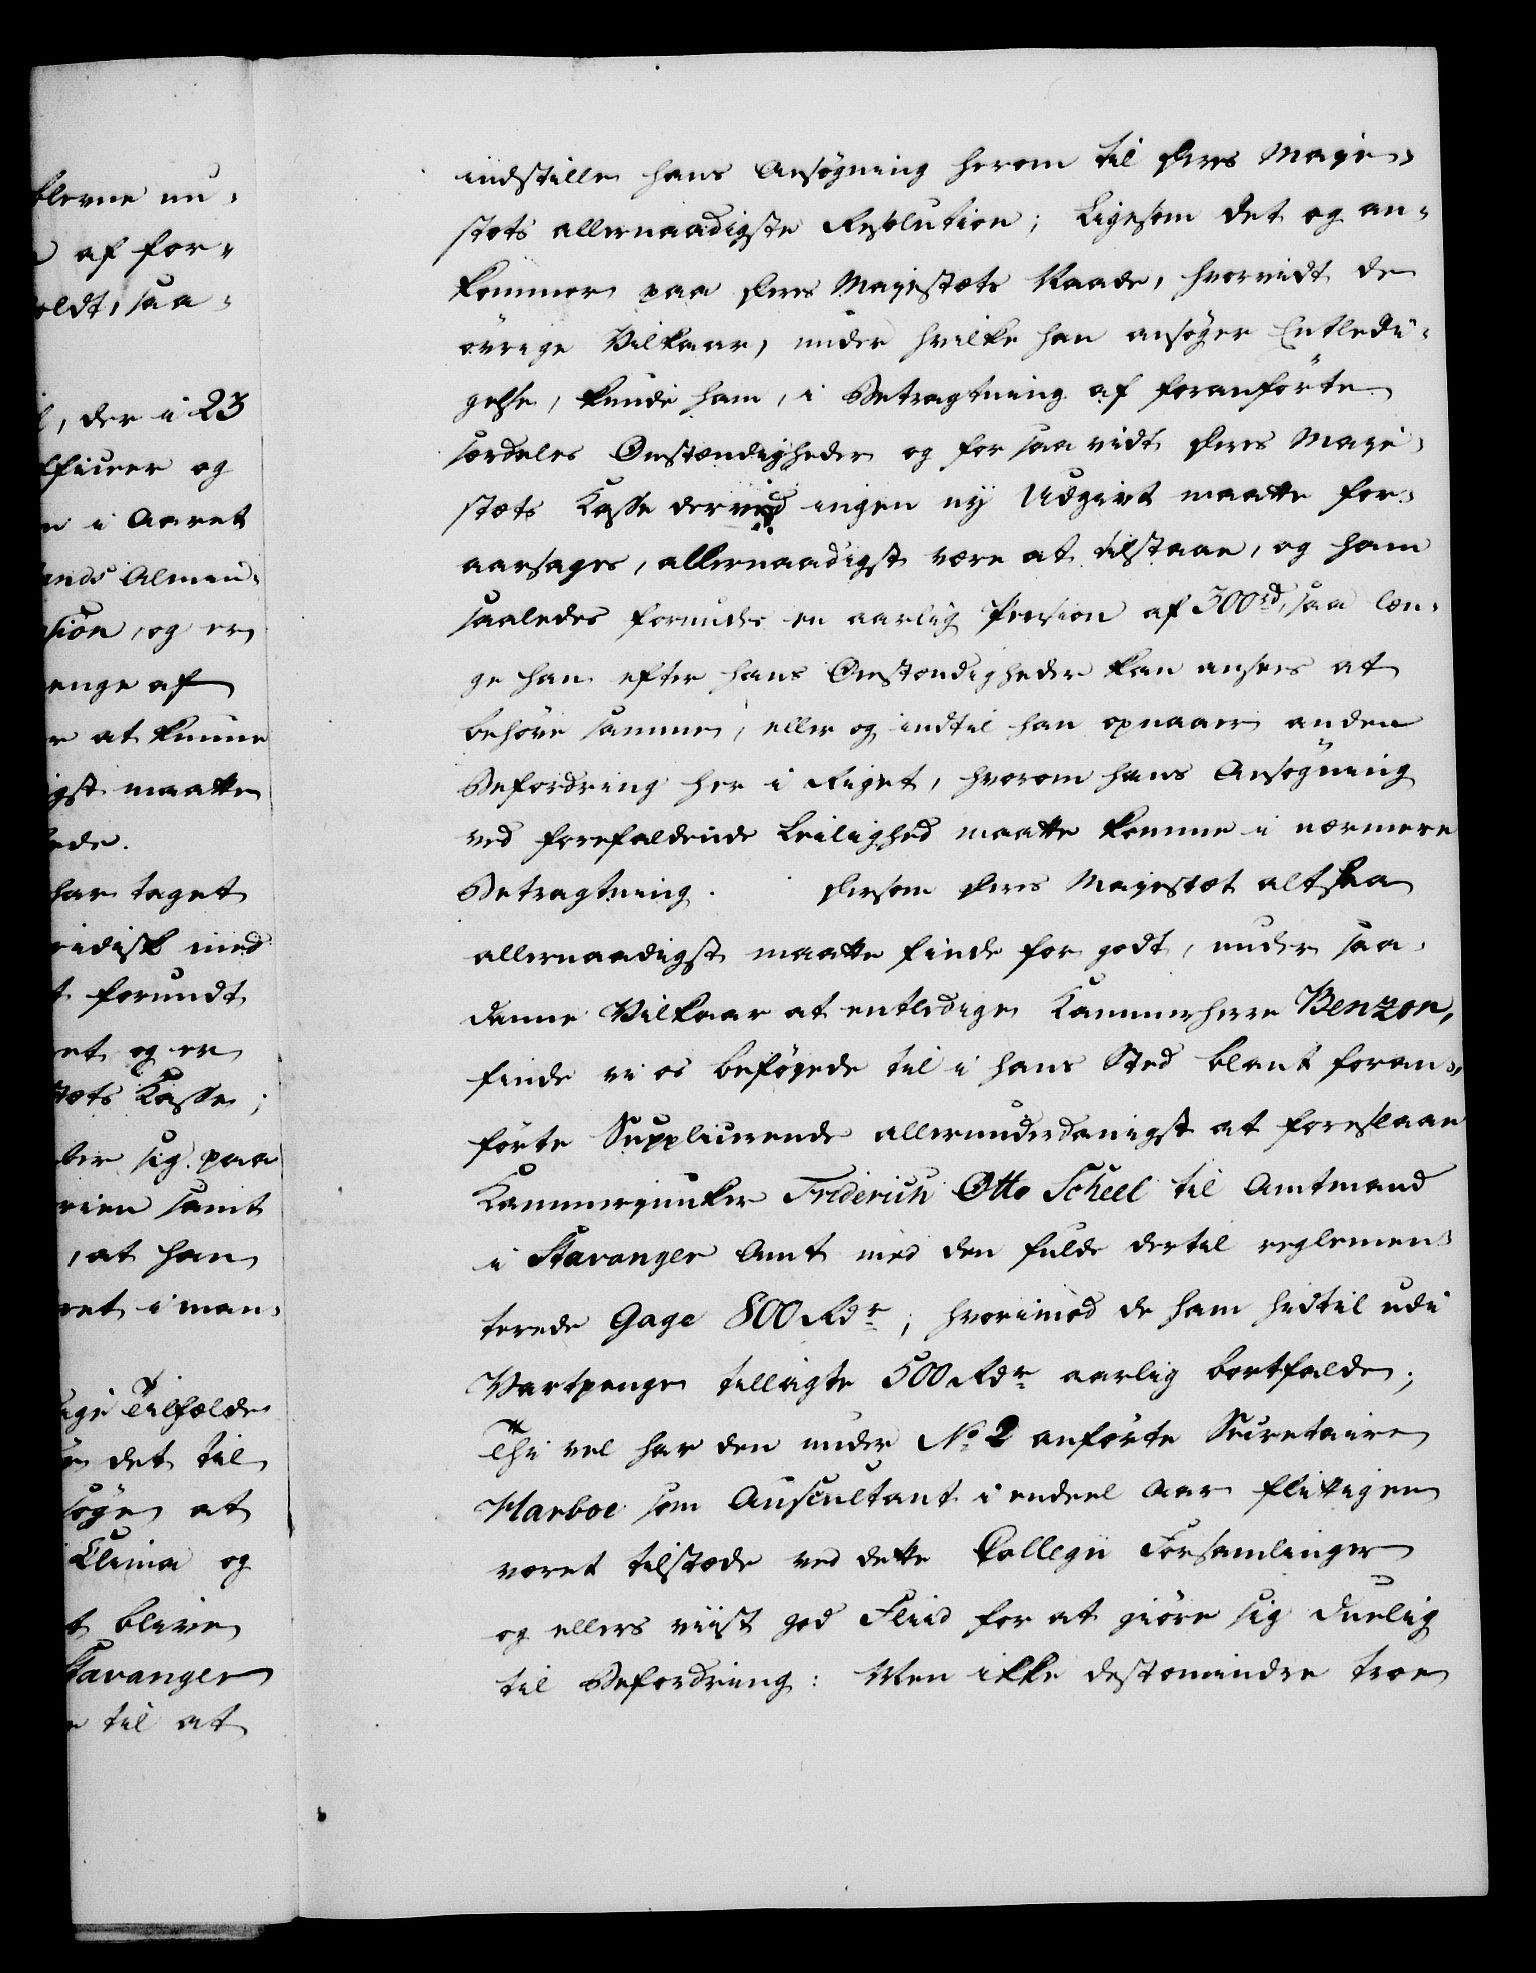 blevne nu-
af for-
oldt, saa-
, der i 23
og
i Aaret
Almin-
sion, og er
enge af
at kunne
igst maatte
ede.
har taget
ridisk med
t forundt
et og er
tæts Kasse;
ber sig paa
rien samt
, at han
ret i man-
Tilfælde
det til
søge at
Clima og
t blive
Stavanger
til at
indstille hans Ansøgning herom til Deres Maje-
stæts allernaadigste Resolution; Ligesom det og an-
kommer paa Deres Majestæts Naade, hvorvidt de
øvrige Vilkaar, under hvilke han ansøger Entledi-
gelse, kunde ham, i Betragtning af foranførte
særdeles Omstændigheder og for saa vidt Deres Maje-
stæts Kasse derved ingen ny Udgivt maatte for-
aarsages, allernaadigst være at tilstaae, og ham
saaledes forundes en aarlig Pension af 300 rd, saa læn-
ge han efter hans Omstændigheder kan ansees at
behøve samme, eller og indtil han opnaaer anden
Befordring her i Riget, hvorom hans Ansøgning
ved forefaldende Leilighed maatte komme i nærmere
Betragtning. Dersom Deres Majestæt altsaa
allernaadigst maatte finde for godt, under saa-
danne Vilkaar at entledige Kammerherre Benzon,
finde vi os beføyede til i hans Sted blant foran-
førte Supplicerende allerunderdanigst at foreslaae
Kammerjunker Friderich Otto Scheel til Amtmand
i Stavanger Amt med den fulde dertil reglemen-
terede Gage 800 Rdr; hvorimod de ham hidtil udi
Vartpenge tillagte 500 Rdr aarlig bortfalde;
Thi vel har den under No 2 anførte Secretaire
Harboe som Auscultant i endeel Aar flittigen
været tilstæde ved dette Collegii Forsamlinger
og ellers viist god Fliid for at giøre sig duelig
til Befordring: Men ikke destomindre troe